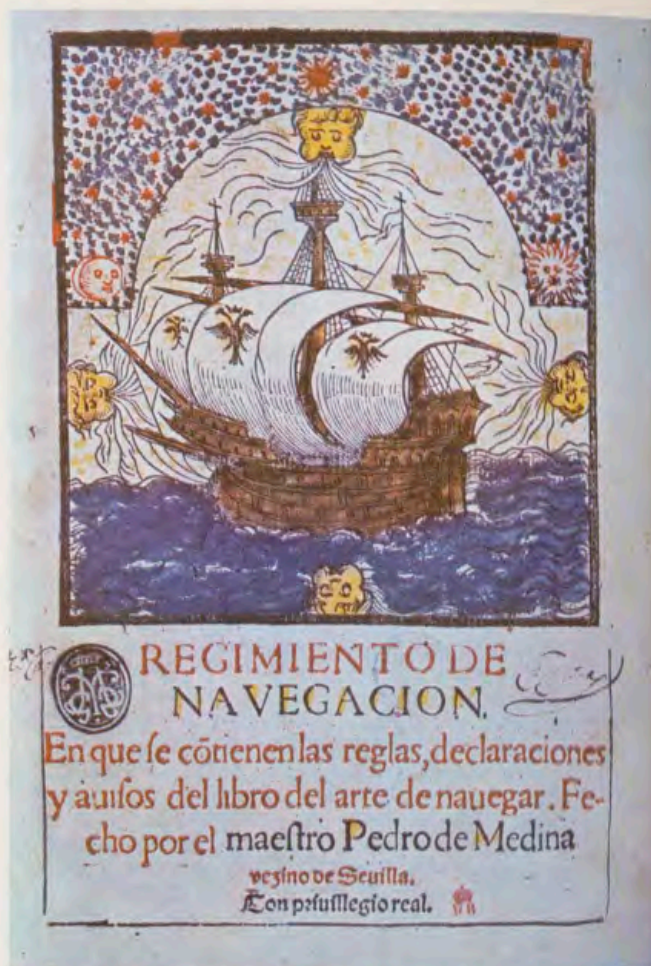 REGIMIENTO DE
NAVEGACION.
En que ſe cõtienen las reglas, declaraciones
y auiſos del libro del arte de nauegar. Fe-
cho por el maeſtro Pedro de Medina
vezino de Seuilla.
Con priuillegio real.